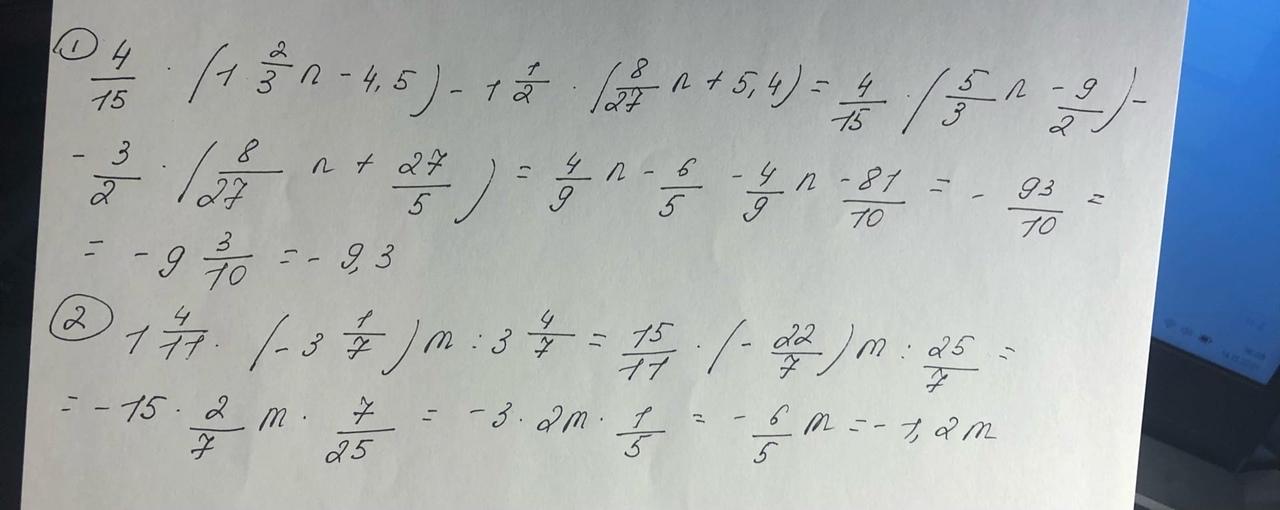 ① 4/15 · (1 2/3 n - 4,5) - 1 1/2 · (8/27 n + 5,4) = 4/15 · (5/3 n - 9/2) -
- 3/2 · (8/27 n + 27/5) = 4/9 n - 6/5 - 4/9 n - 81/10 = - 93/10 =
= - 9 3/10 = - 9,3
② 1 4/11 · (- 3 1/7) m : 3 4/7 = 15/11 · (- 22/7) m : 25/7 =
= - 15 · 2/7 m · 7/25 = - 3 · 2m · 1/5 = - 6/5 m = - 1,2m